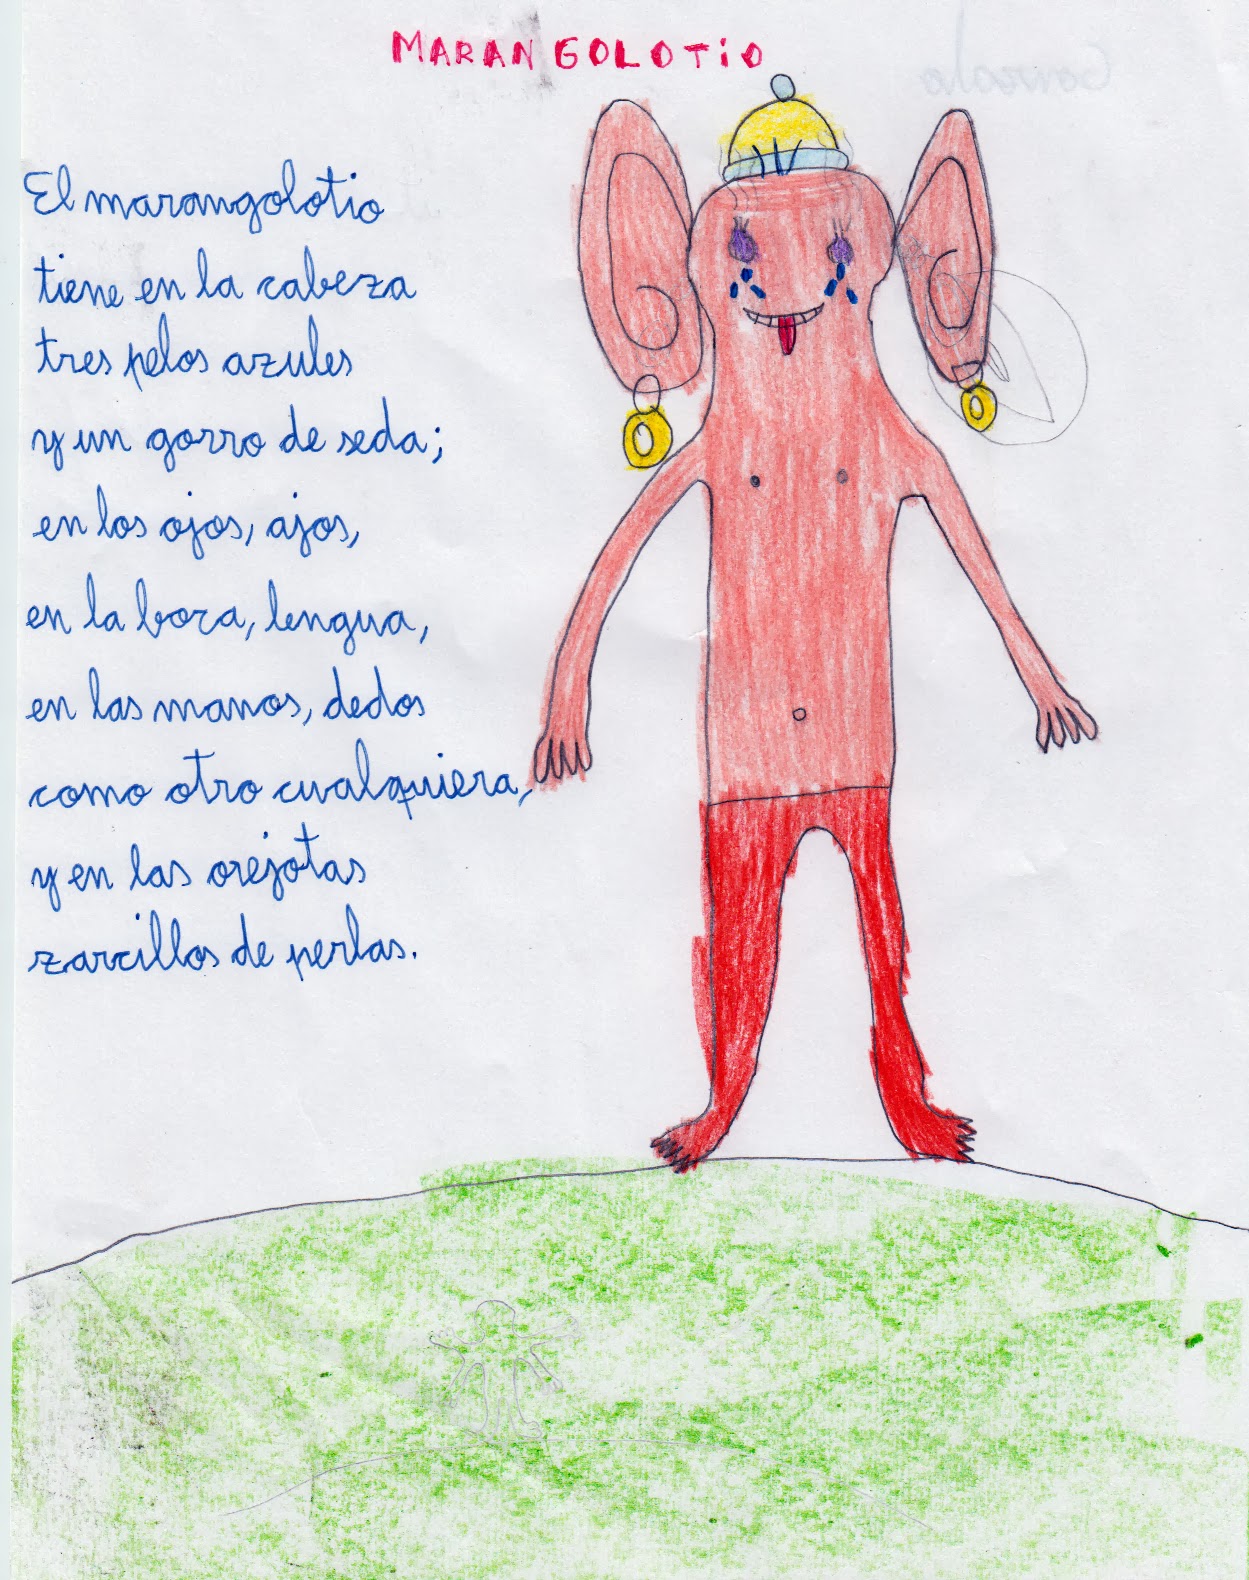 MARANGOLOTiO
Gonzalo
El marangolotio
tiene en la cabeza
tres pelos azules
y un gorro de seda;
en los ojos, ajos,
en la boca, lengua,
en las manos, dedos
como otro cualquiera,
y en las orejotas
zarcillos de perlas.